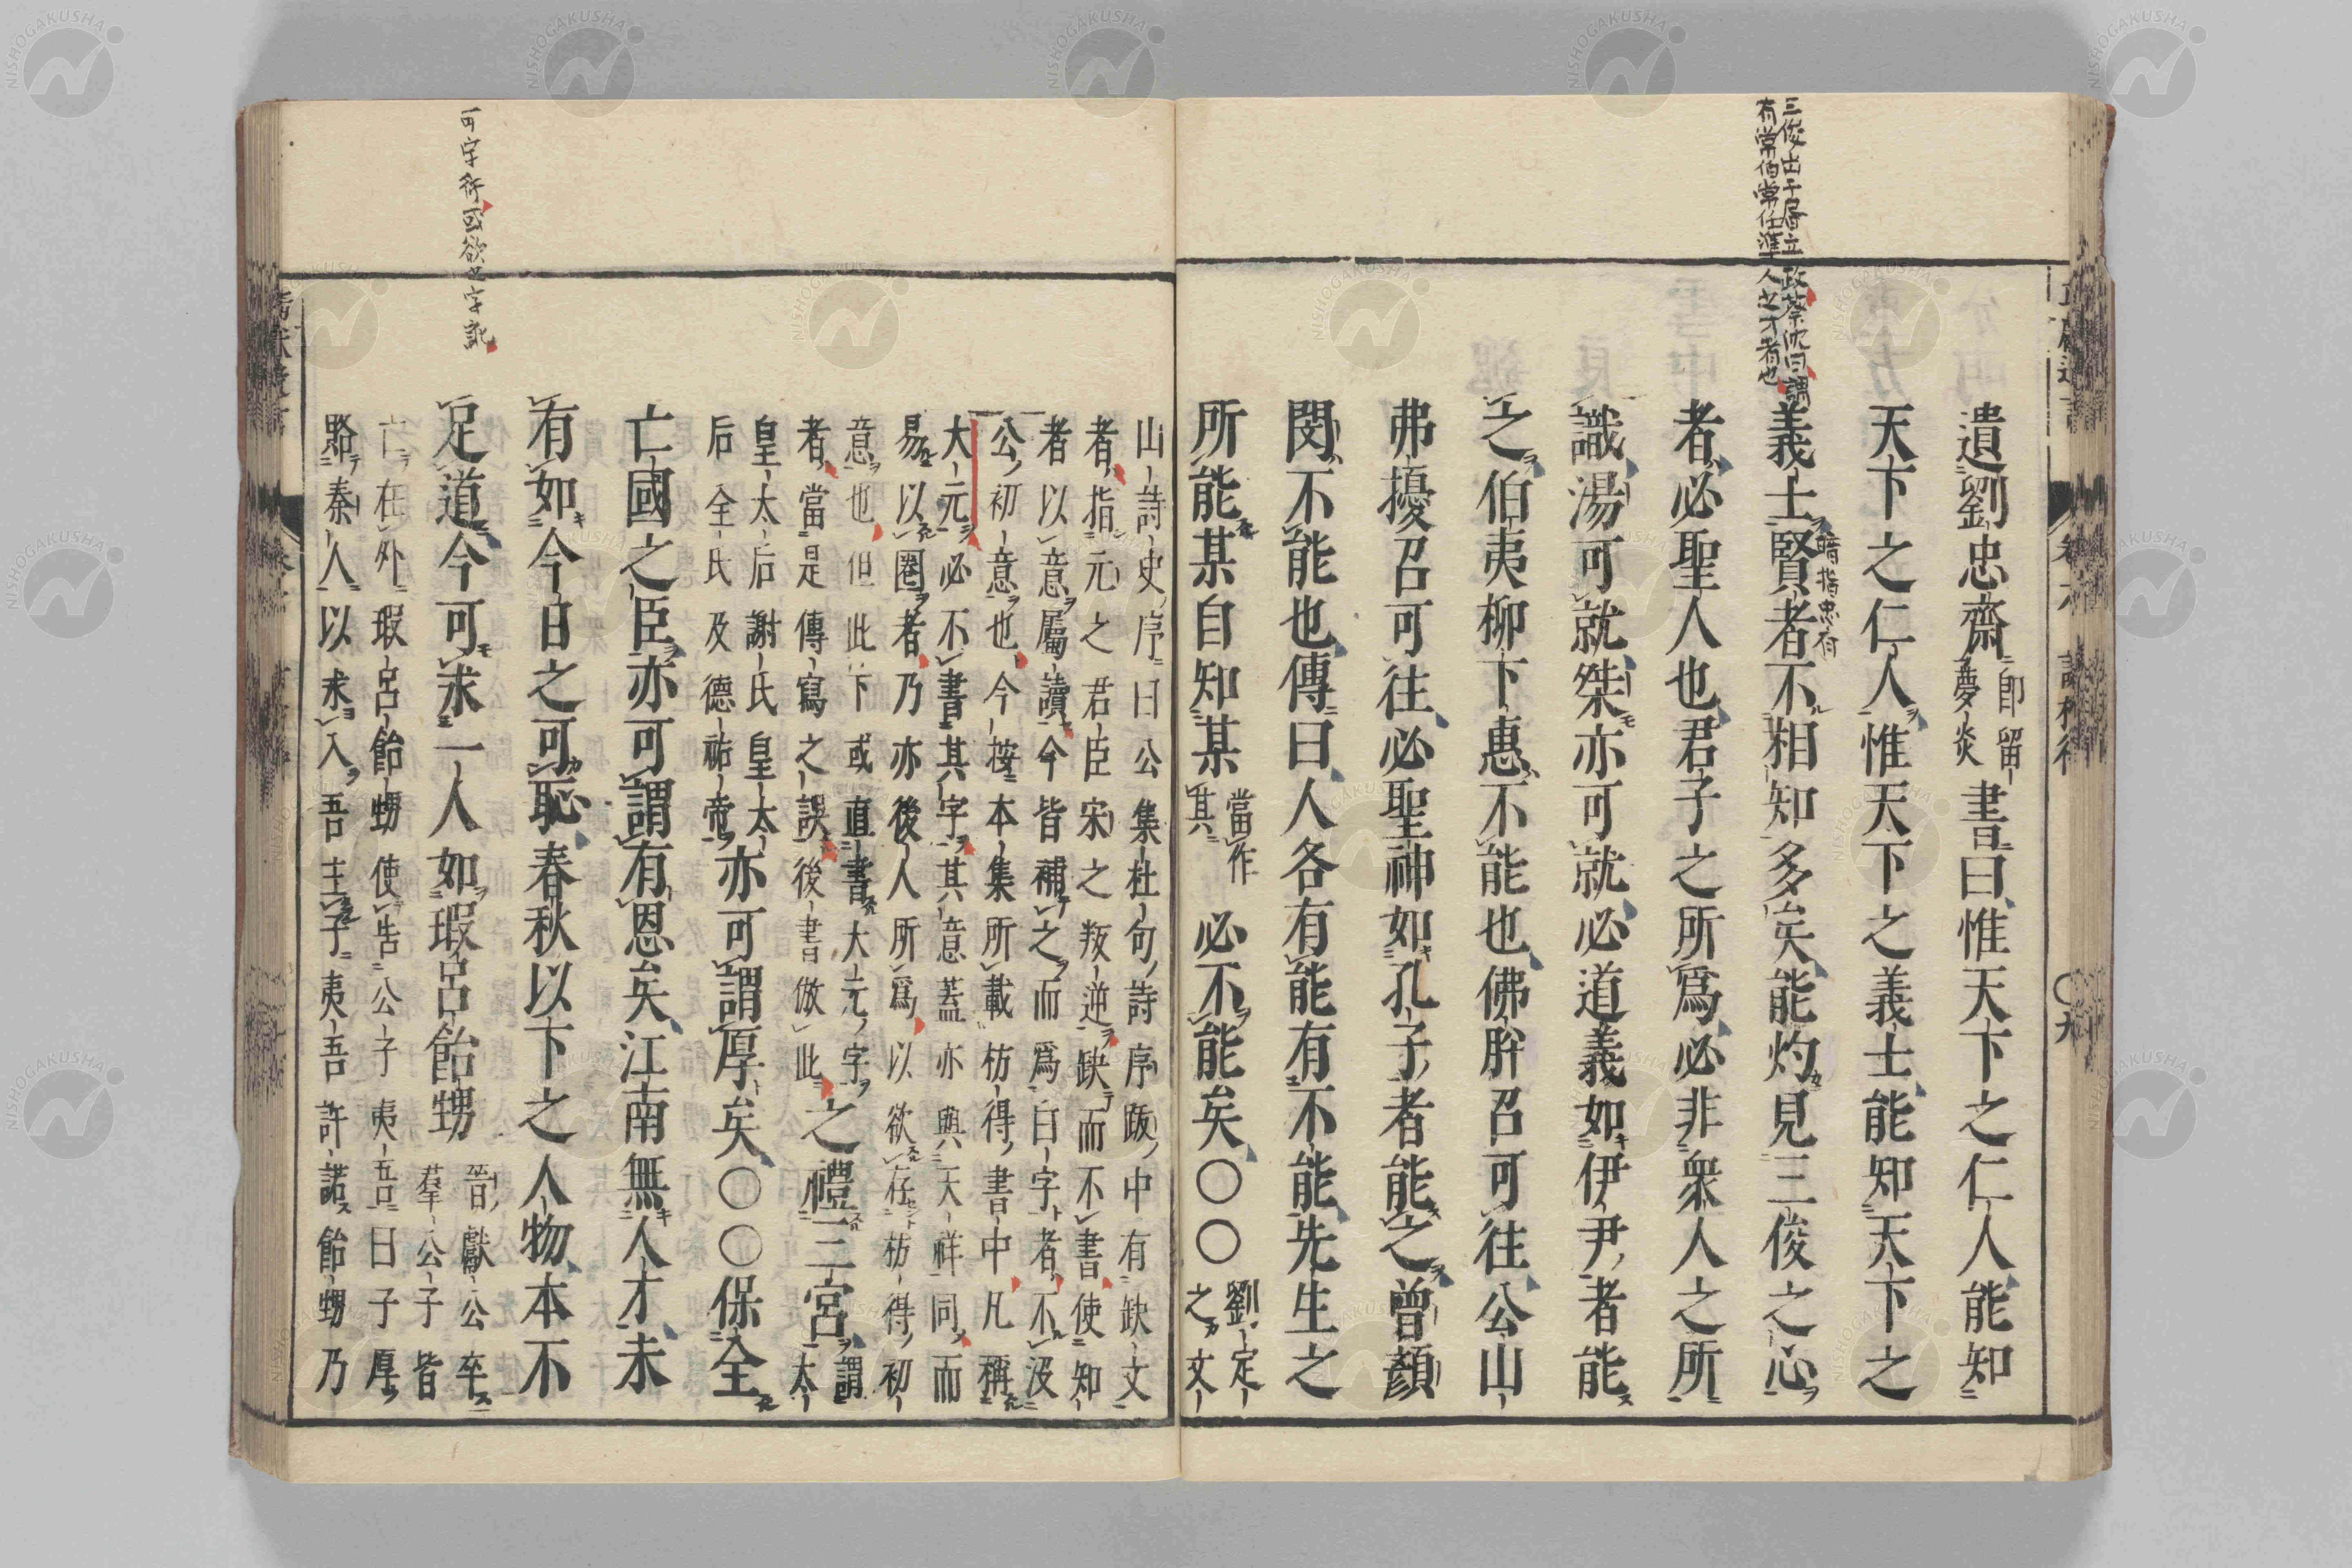 三俊出于周書立政蔡沈曰謂
有常伯常任準人之才者也
遺劉忠齋即留夢炎書曰惟天下之仁人能知
天下之仁人惟天下之義士能知天下之
義士賢者不相知多矣能灼見三俊之心
暗指忠齋
者必聖人也君子之所爲必非衆人之所
識湯可就桀亦可就必道義如伊尹者能
之伯夷柳下惠不能也佛肸召可往公山
弗擾召可往必聖神如孔子者能之曾顏
閔不能也傳曰人各有能有不能先生之
所能某自知某當作其必不能矣〇〇劉定之文
山詩史序曰公集杜句詩序跋中有缺文
者指元之君臣宋之叛逆缺而不書使知
者以意屬讀今皆補之而爲白字者不沒
公初意也今按本集所載枋得書中凡稱
大元必不書其字其意蓋亦與天祥同而
易以圈者乃亦後人所爲以欲存枋得初
意也但此下或直書大元字
者當是傳寫之誤後書倣此之禮三宮謂太
皇太后謝氏皇太
后全氏及德祐帝亦可謂厚矣〇〇保全
亡國之臣亦可謂有恩矣江南無人才未
有如今日之可恥春秋以下之人物本不
可字衍或欲之字訛
足道今可求一人如瑕呂飴甥晉獻公卒羣公子皆
亡在外瑕呂飴甥使告公子夷吾曰子厚
賂秦人以求入吾主子夷吾許諾飴甥乃
NISHOGAKUSHA